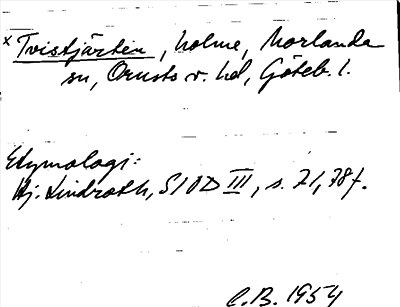 x Tvistjärten, holme, Morlanda
sn, Orusts v. hd, Göteb. l.
Etymologi:
Hj. Lindroth, SIOD III, s. 71, 78 f.
C.B. 1954